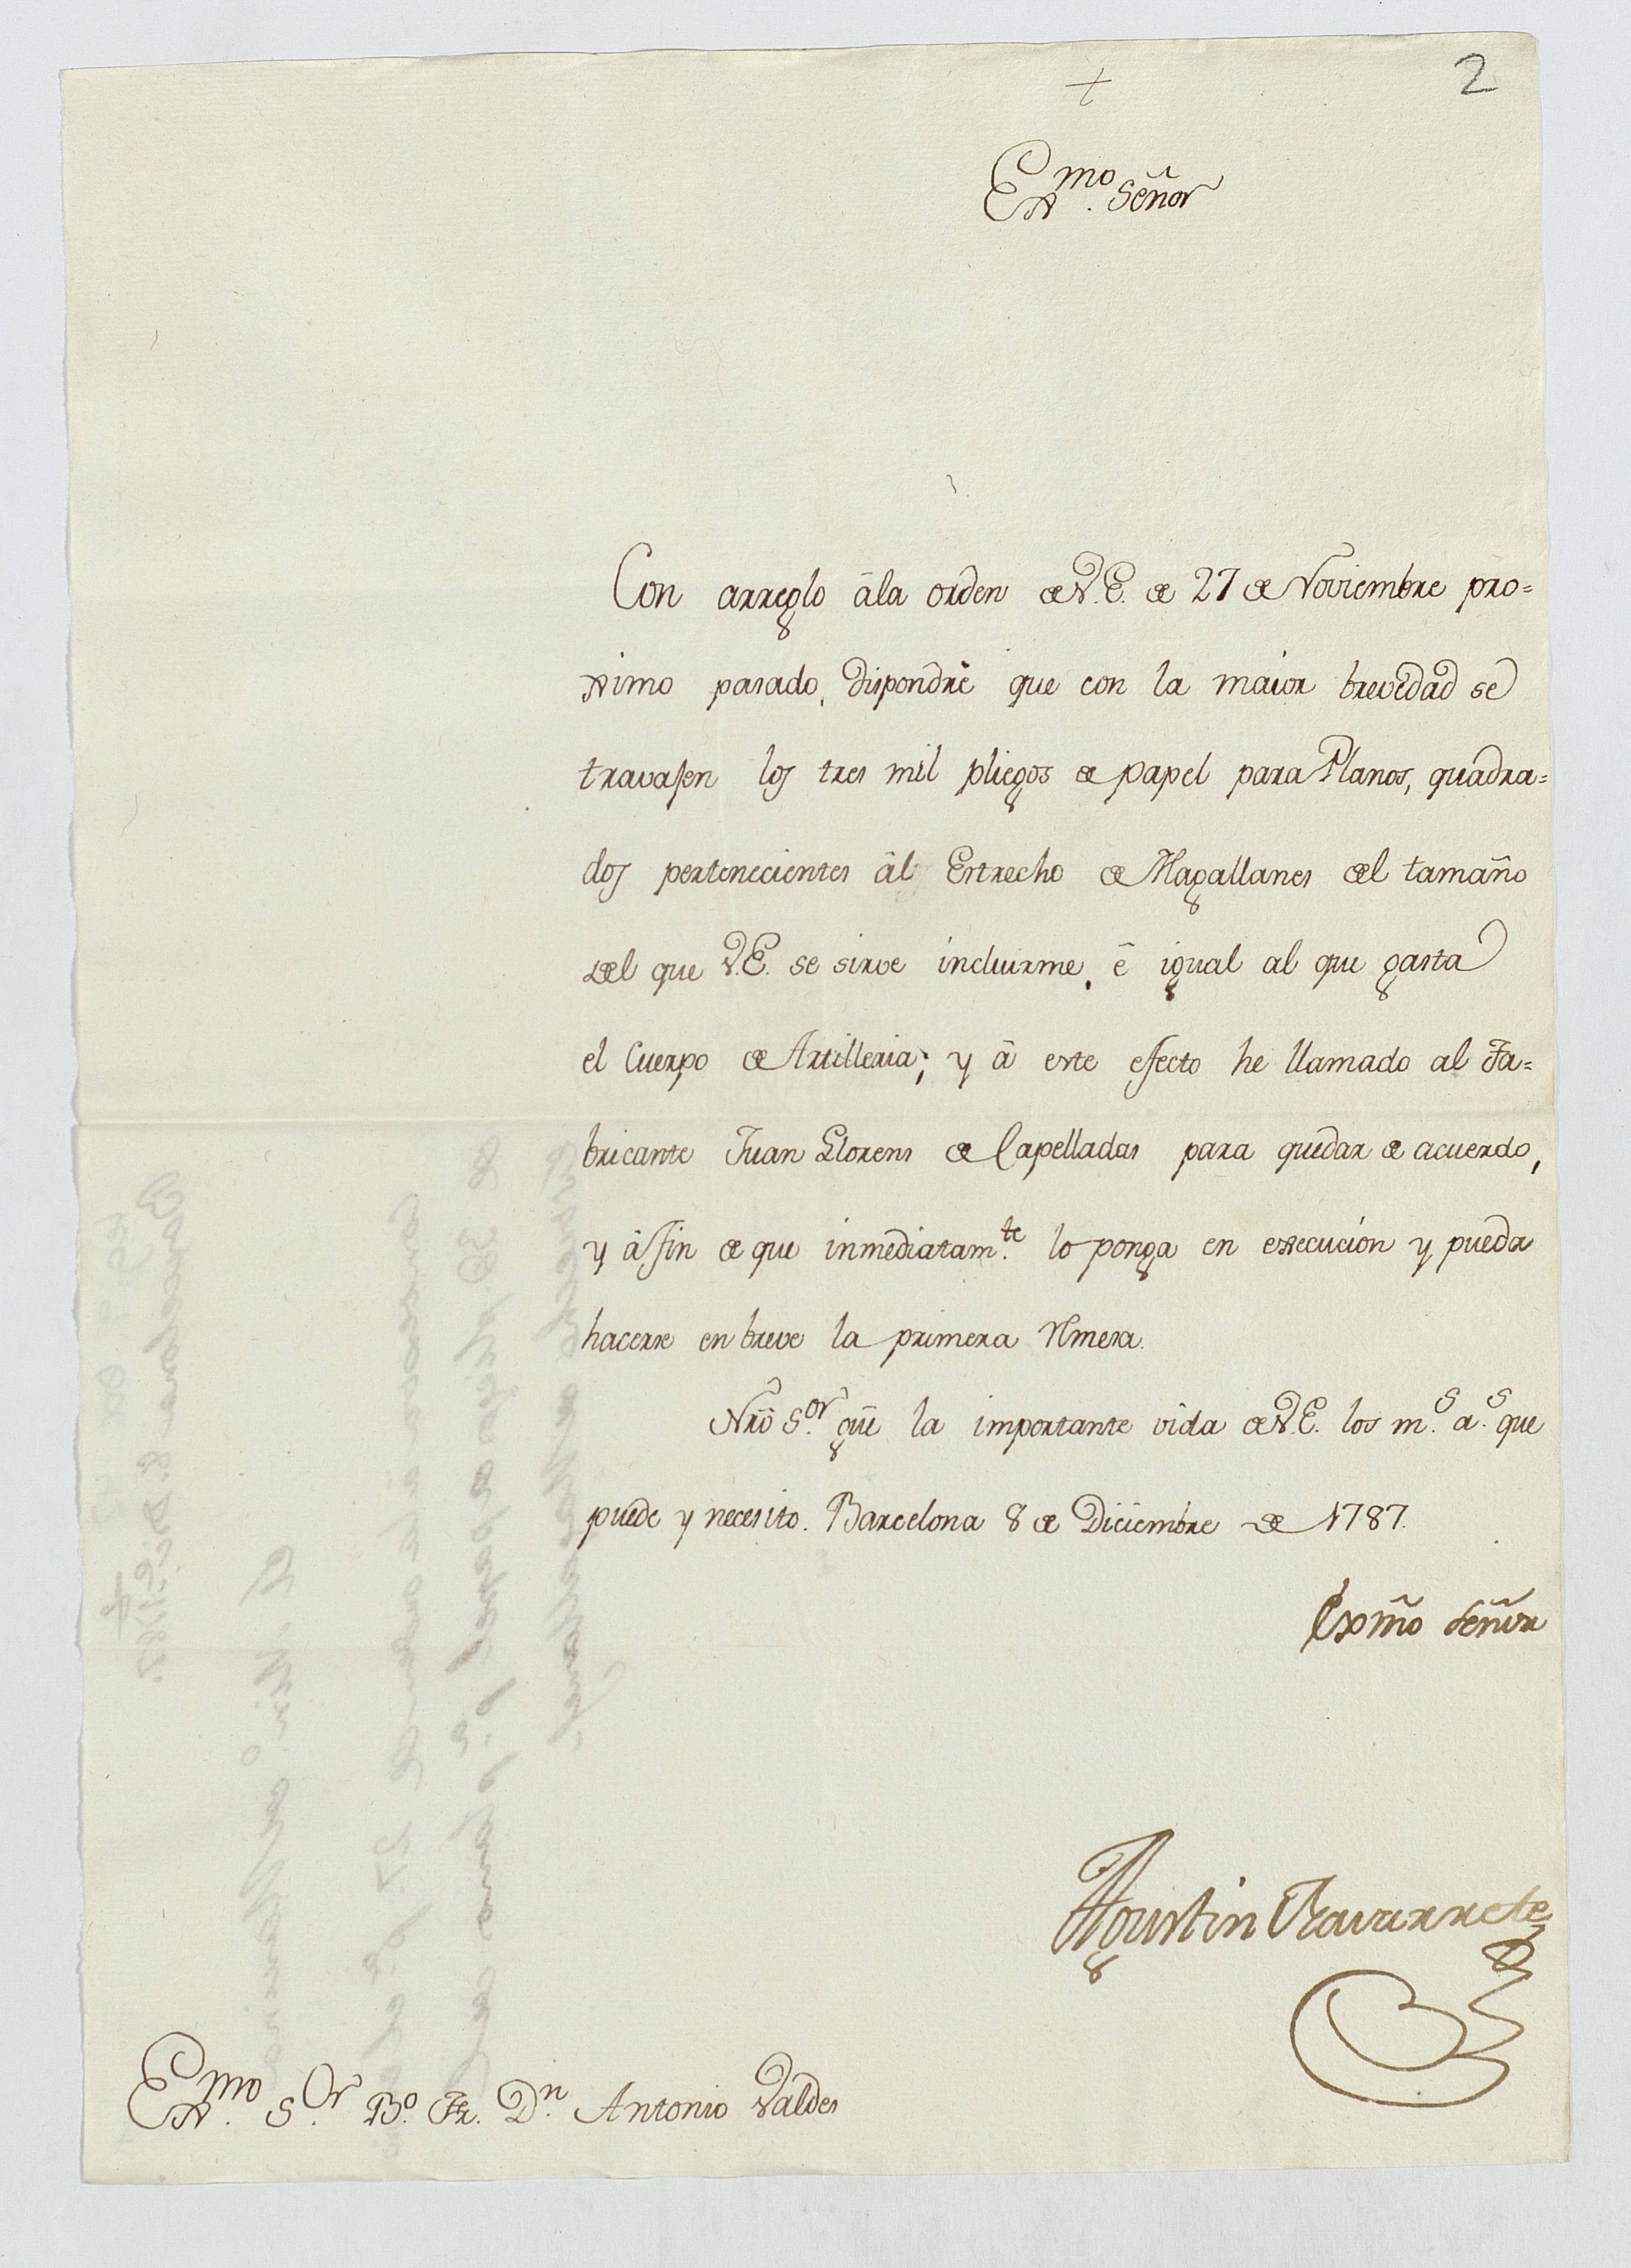 2
+
Exmo. Señor
Con arreglo âla orden de V.E. de 27 de Noviembre pro=
ximo pasado, dispondrè que con la maior brevedad se
travasen los tres mil pliegos de papel para Planos, quadra=
dos pertenecientes âl Estrecho de Magallanes del tamaño
del que V.E. se sirve incluirme, ê igual al que gasta
el Cuerpo de Artilleria; y â este efecto he llamado al Fa=
bricante Juan Llorens de Capelladas para quedar de acuerdo,
y â fin de que inmediatam.te lo ponga en execucion y pueda
hacerse en breve la primera Rmesa.
Nrô S.or güe la importante vida de V.E. los m.s a.s que
puede y necesito. Barcelona 8 de Diciembre de 1787.
Exmõ Señor
Agustin Navarrete
Exmo. S.or B.o Fr. D.n Antonio Valdes